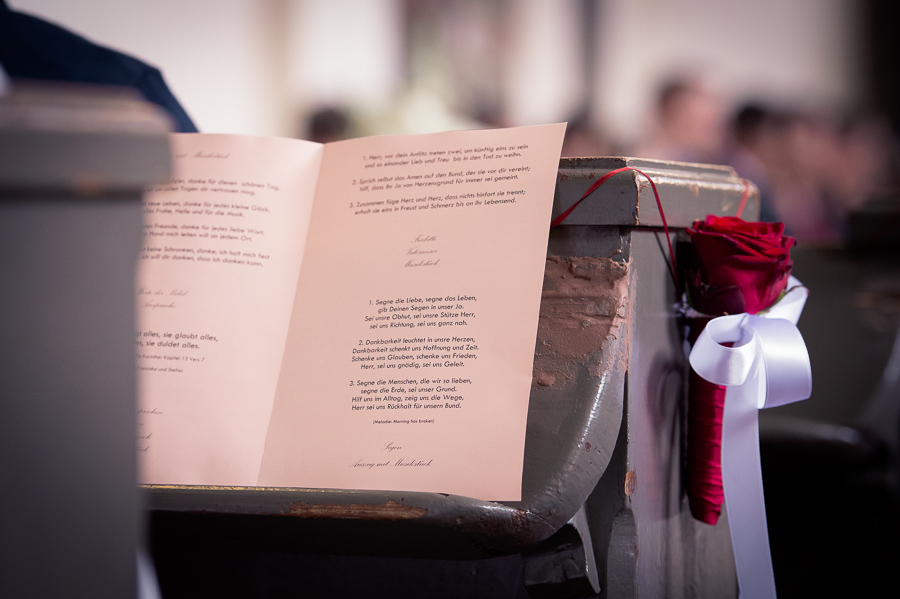 mit Musikstück
danke für diesen schönen Tag,
allen Tagen Dir vertrauen mag.
neue Leben, danke für jedes kleine Glück.
Frohe, Helle und für die Musik.
Freunde, danke für jedes liebe Wort.
Hand mich leiten will an jedem Ort.
keine Schranken, danke, ich halt mich fest
ich will dir danken, dass ich danken kann.
der Bibel
Ansprache
alles, sie glaubt alles,
sie duldet alles.
Korinther Kapitel 13 Vers 7
und Stefan
1. Herr, vor dein Antlitz treten zwei, um künftig eins zu sein
und so einander Lieb und Treu bis in den Tod zu weihn.
2. Sprich selbst das Amen auf den Bund, der sie vor dir vereint;
hilf, dass ihr Ja von Herzensgrund für immer sei gemeint.
3. Zusammen füge Herz und Herz, dass nichts hinfort sie trennt;
erhalt sie eins in Freud und Schmerz bis an ihr Lebensend.
Fürbitte
Vaterunser
Musikstück
1. Segne die Liebe, segne das Leben,
gib Deinen Segen in unser Ja.
Sei unsre Obhut, sei unsre Stütze Herr,
sei uns Richtung, sei uns ganz nah.
2. Dankbarkeit leuchtet in unsre Herzen,
Dankbarkeit schenkt uns Hoffnung und Zeit.
Schenke uns Glauben, schenke uns Frieden,
Herr, sei uns gnädig, sei uns Geleit.
3. Segne die Menschen, die wir so lieben,
segne die Erde, sei unser Grund.
Hilf uns im Alltag, zeig uns die Wege,
Herr sei uns Rückhalt für unsern Bund.
(Melodie: Morning has broken)
Segen
Auszug mit Musikstück